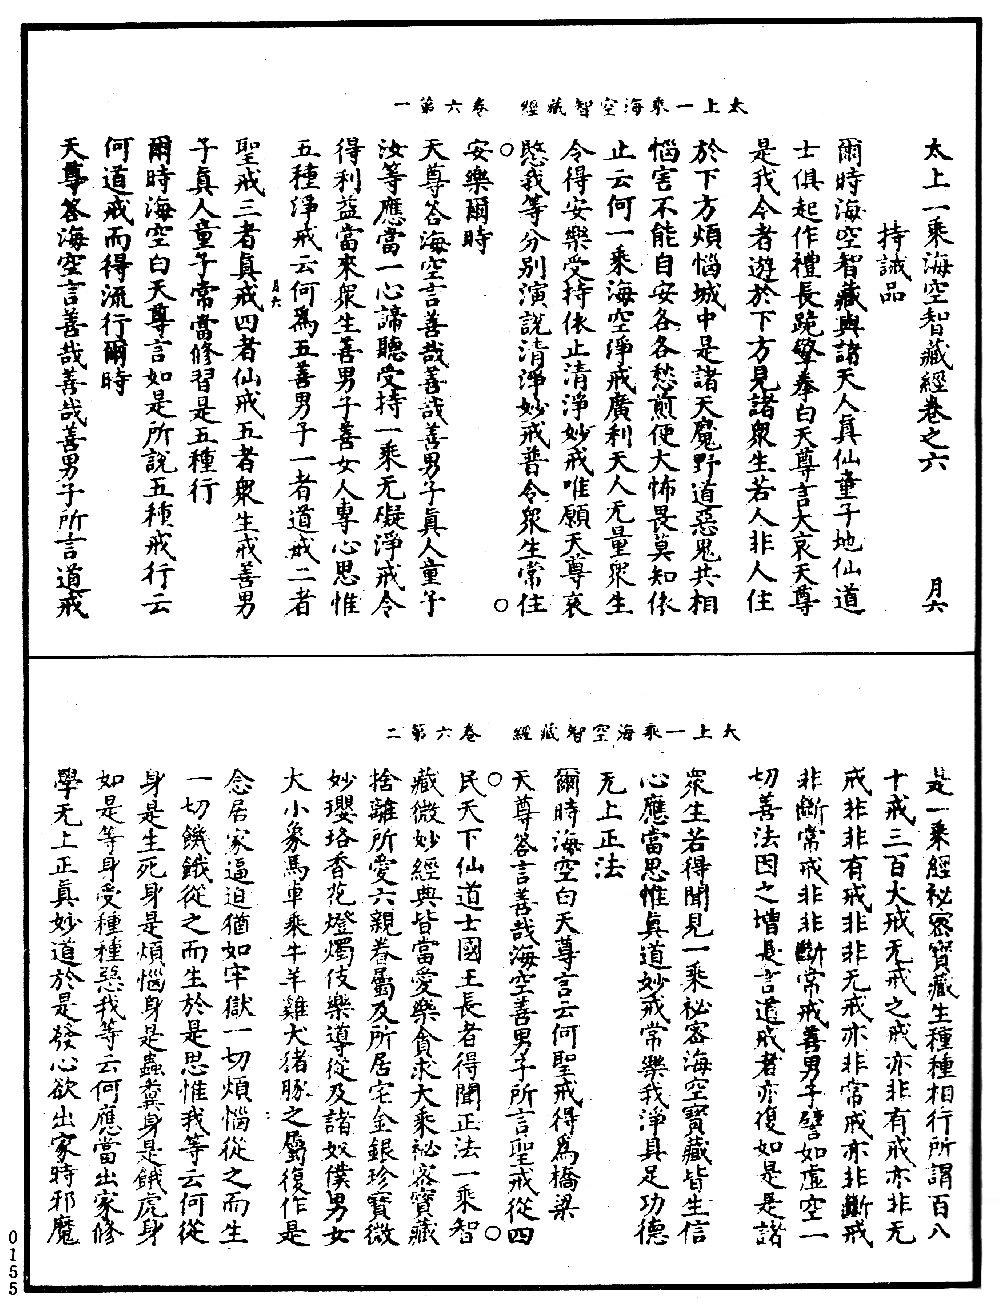 太上一乘海空智藏經　卷六第一
太上一乘海空智藏經卷之六　　月六
持誡品
爾時海空智藏與諸天人真仙童子地仙道
士俱起作禮長跪擎拳白天尊言大哀天尊
是我今者遊於下方見諸眾生若人非人住
於下方煩惱城中是諸天魔野道惡鬼共相
惱害不能自安各各愁煎便大怖畏莫知依
止云何一乘海空淨戒廣利天人无量眾生
令得安樂受持依止清淨妙戒唯願天尊哀
愍我等分別演說清淨妙戒普令眾生常住
安樂爾時
天尊答海空言善哉善哉善男子真人童子
汝等應當一心諦聽受持一乘无礙淨戒令
得利益當來眾生善男子善女人專心思惟
五種淨戒云何為五善男子一者道戒二者
月六
聖戒三者真戒四者仙戒五者眾生戒善男
子真人童子常當修習是五種行
爾時海空白天尊言如是所說五種戒行云
何道戒而得流行爾時
天尊答海空言善哉善哉善男子所言道戒
太上一乘海空智藏經　卷六第二
是一乘經祕密寶藏生種種相行所謂百八
十戒三百大戒无戒之戒亦非有戒亦非无
戒非非有戒非非无戒亦非常戒亦非斷戒
非斷常戒非非斷常戒善男子譬如虛空一
切善法因之增長言道戒者亦復如是是諸
眾生若得聞見一乘祕密海空寶藏皆生信
心應當思惟真道妙戒常樂我淨具足功德
无上正法
爾時海空白天尊言云何聖戒得為橋梁
天尊答言善哉海空善男子所言聖戒從四
民天下仙道士國王長者得聞正法一乘智
藏微妙經典皆當愛樂貪求大乘祕密寶藏
捨離所愛六親眷屬及所居宅金銀珍寶微
妙瓔珞香花燈燭伎樂導從及諸奴僕男女
大小象馬車乘牛羊雞犬猪豚之屬復作是
念居家逼迫猶如牢獄一切煩惱從之而生
一切饑餓從之而生於是思惟我等云何從
身是生死身是煩惱身是蟲糞身是餓虎身
如是等身受種種惡我等云何應當出家修
學无上正真妙道於是發心欲出家時邪魔
0155